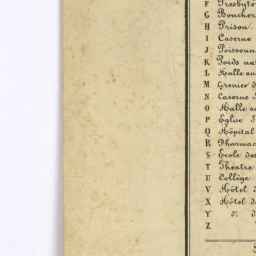 F Presbytè
G Boucher
H Prison.
I Caserne
J Poissonn
K Poids na
L Halle au
M Grenier d
N Caserne
O Halle a
P Eglise
Q Hôpital
R Pharmac
S Ecole de
T Théatre
U Collège
V Hôtel
X Hôtel d
Y d.º d
Z